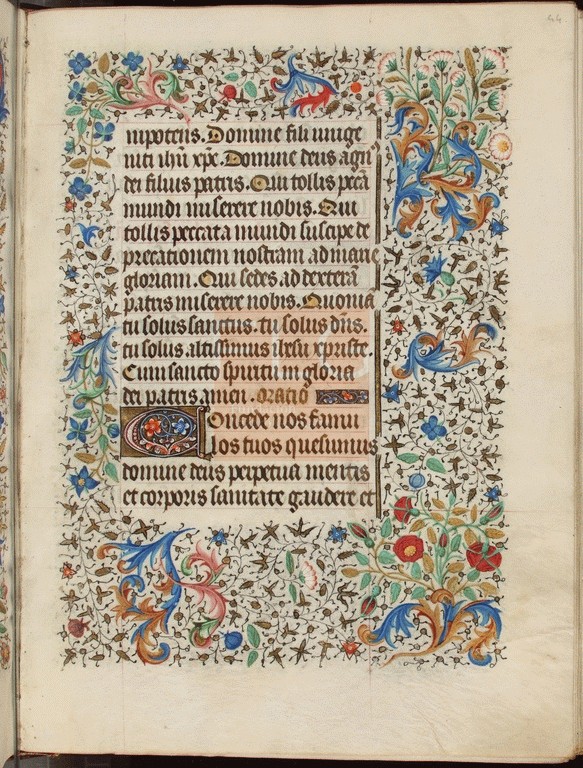 44
nipotens. Domine fili unige
niti ihu xpe. Domine deus agn
dei filius patris. Qui tollis peca
mundi miserere nobis. Qui
tollis peccata mundi suscipe de
precationem nostram. ad matie
gloriam. Qui sedes. ad dextera
patris miserere nobis. Quonia
tu solus sanctus. tu solus dns.
tu solus. altissimus ihesu xpriste.
Cum sancto spiritu in gloria
dei patris amen. oratio
Concede nos famu
los tuos quesumus
domine deus perpetua mentis
et corporis sanitate gaudere et